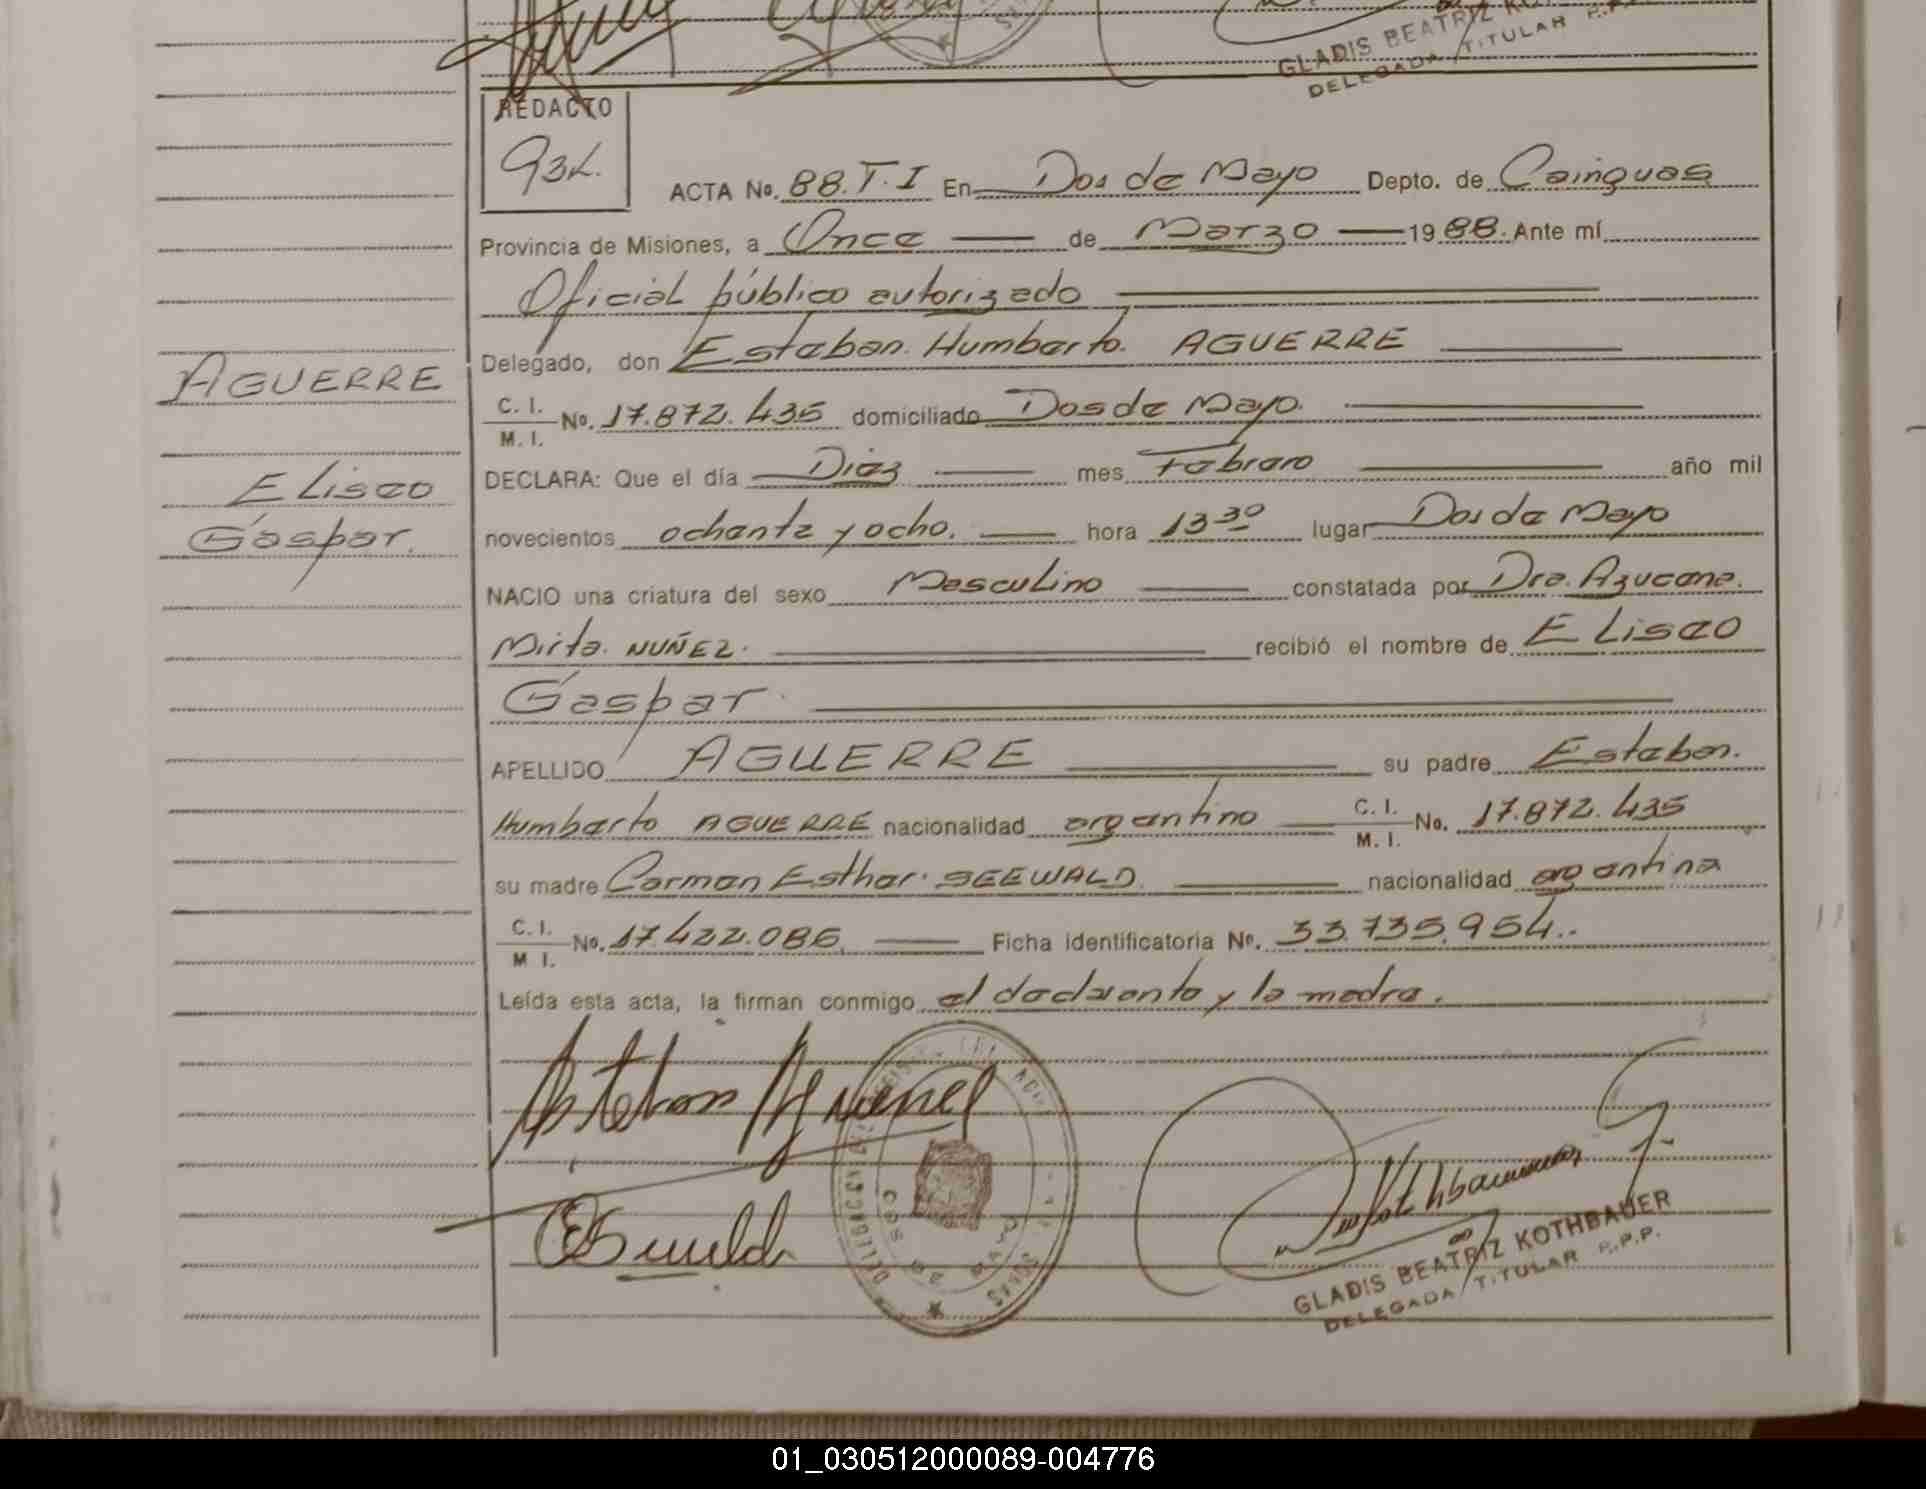 GLADIS BEATRIZ
DELEGADA TITULAR R.P.P.
REDACTO
93L.
ACTA No. 88.T.I En Dos de Mayo Depto. de Cainguas
Provincia de Misiones, a Once de Marzo 1988. Ante mí
Oficial público autorizado
Delegado, don Esteban Humberto AGUERRE
AGUERRE
C. I.
M. I. No. 17.872.435 domiciliado Dos de Mayo.
DECLARA: Que el día Diez mes Febrero año mil
Eliseo
novecientos ochenta y ocho. hora 13 30 lugar Dos de Mayo
Gaspar.
NACIO una criatura del sexo Masculino constatada por Dra. Azucena.
Mirta. NUÑEZ. recibió el nombre de Eliseo
Gaspar.
APELLIDO AGUERRE su padre Esteban.
Humberto AGUERRE nacionalidad argentino C. I. M. I. No. 17.872.435
su madre Carmen Esther. SEEWALD. nacionalidad argentina
C. I.
M I. No. 17.422.086. Ficha identificatoria No. 33.735.954..
Leída esta acta, la firman conmigo el declarante y la madre.
DOS DE MAYO
GLADIS BEATRIZ KOTHBAUER
DELEGADA TITULAR R.P.P.
01_030512000089-004776